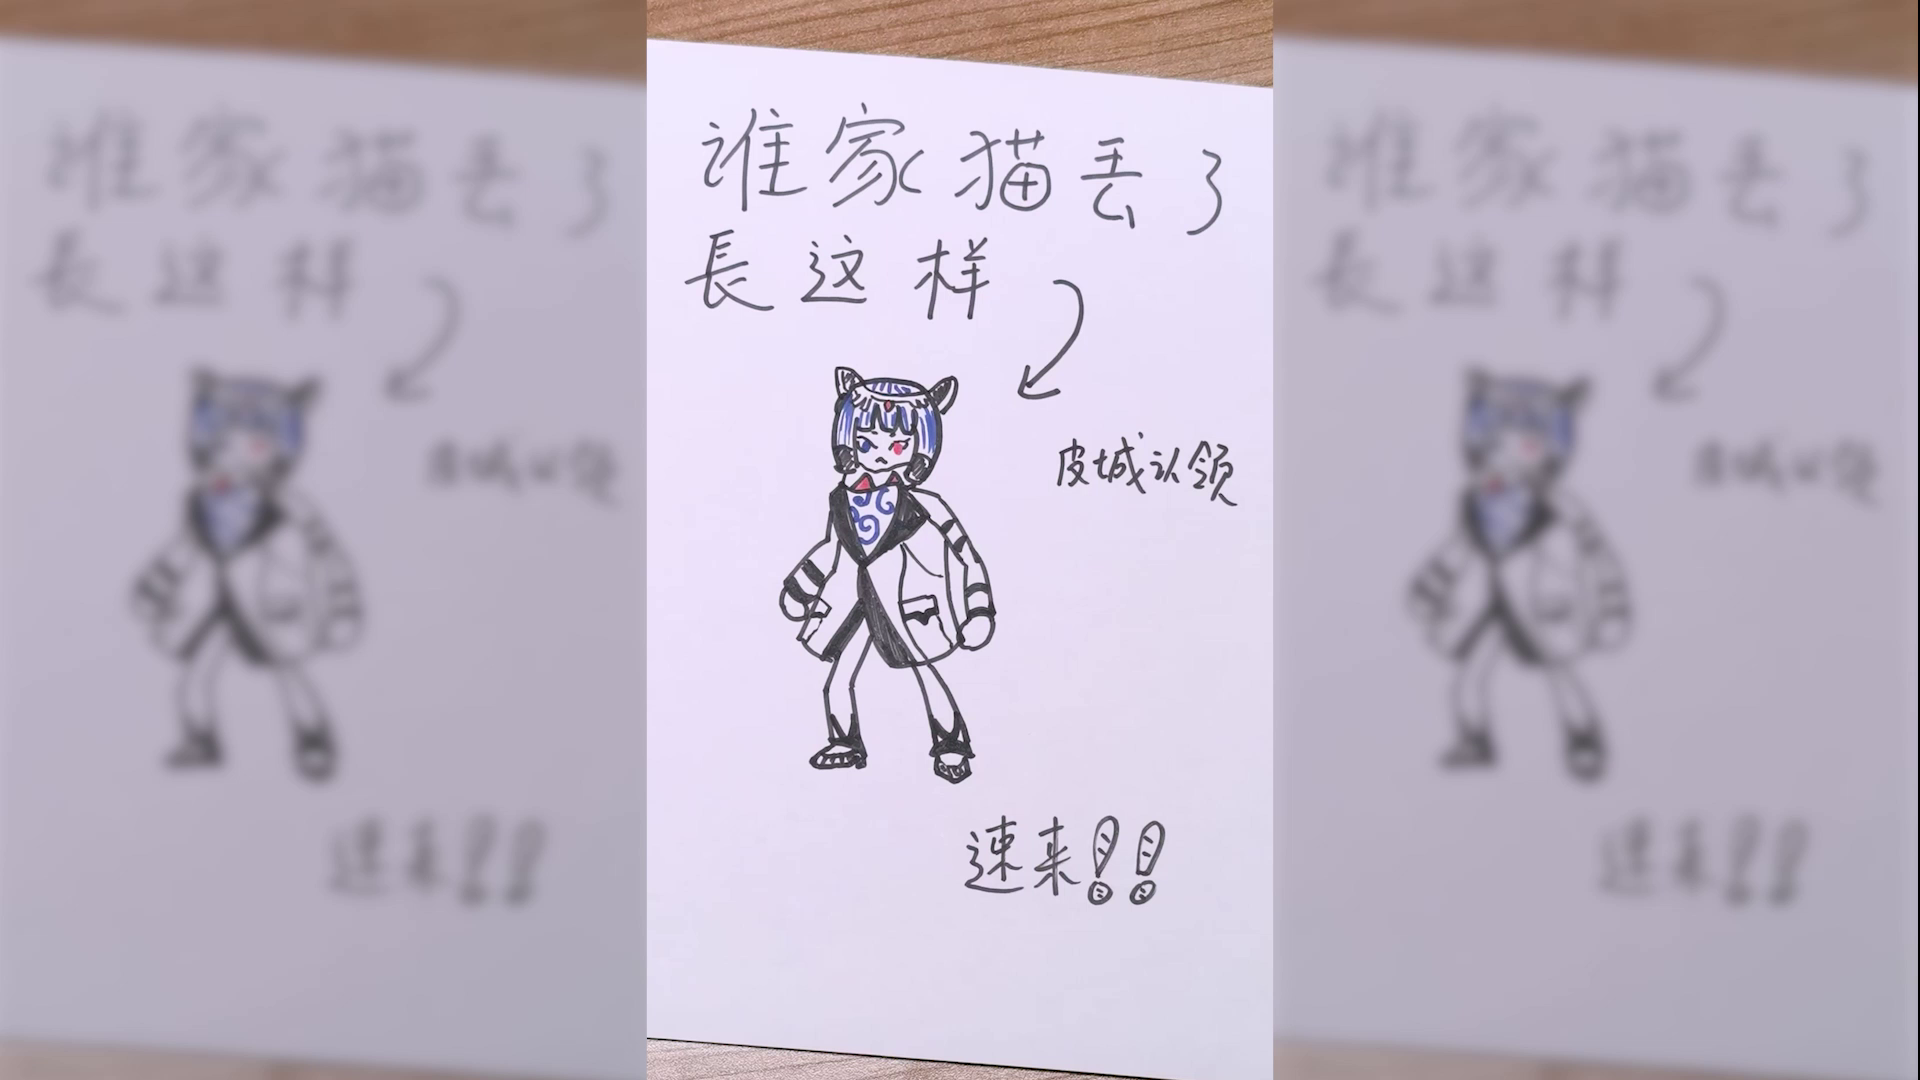 谁家猫丢了
長这样
皮城认领
速来!!